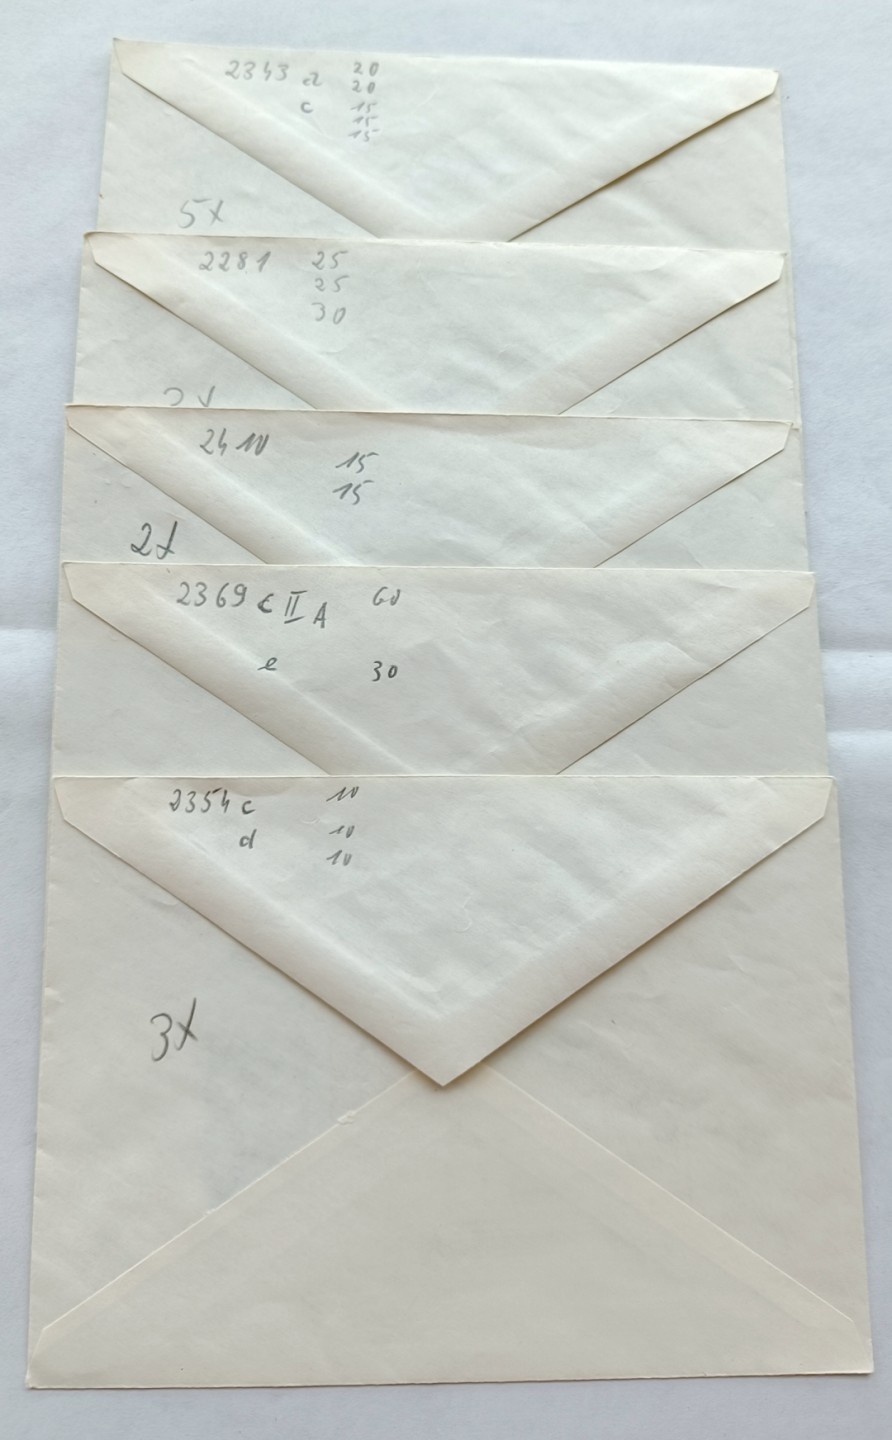 2343 a 20
20
c 15
15
15
5x
2281 25
25
30
2410
15
15
2x
2369 c II A 60
e 30
2354 c 10
d 10
10
3x